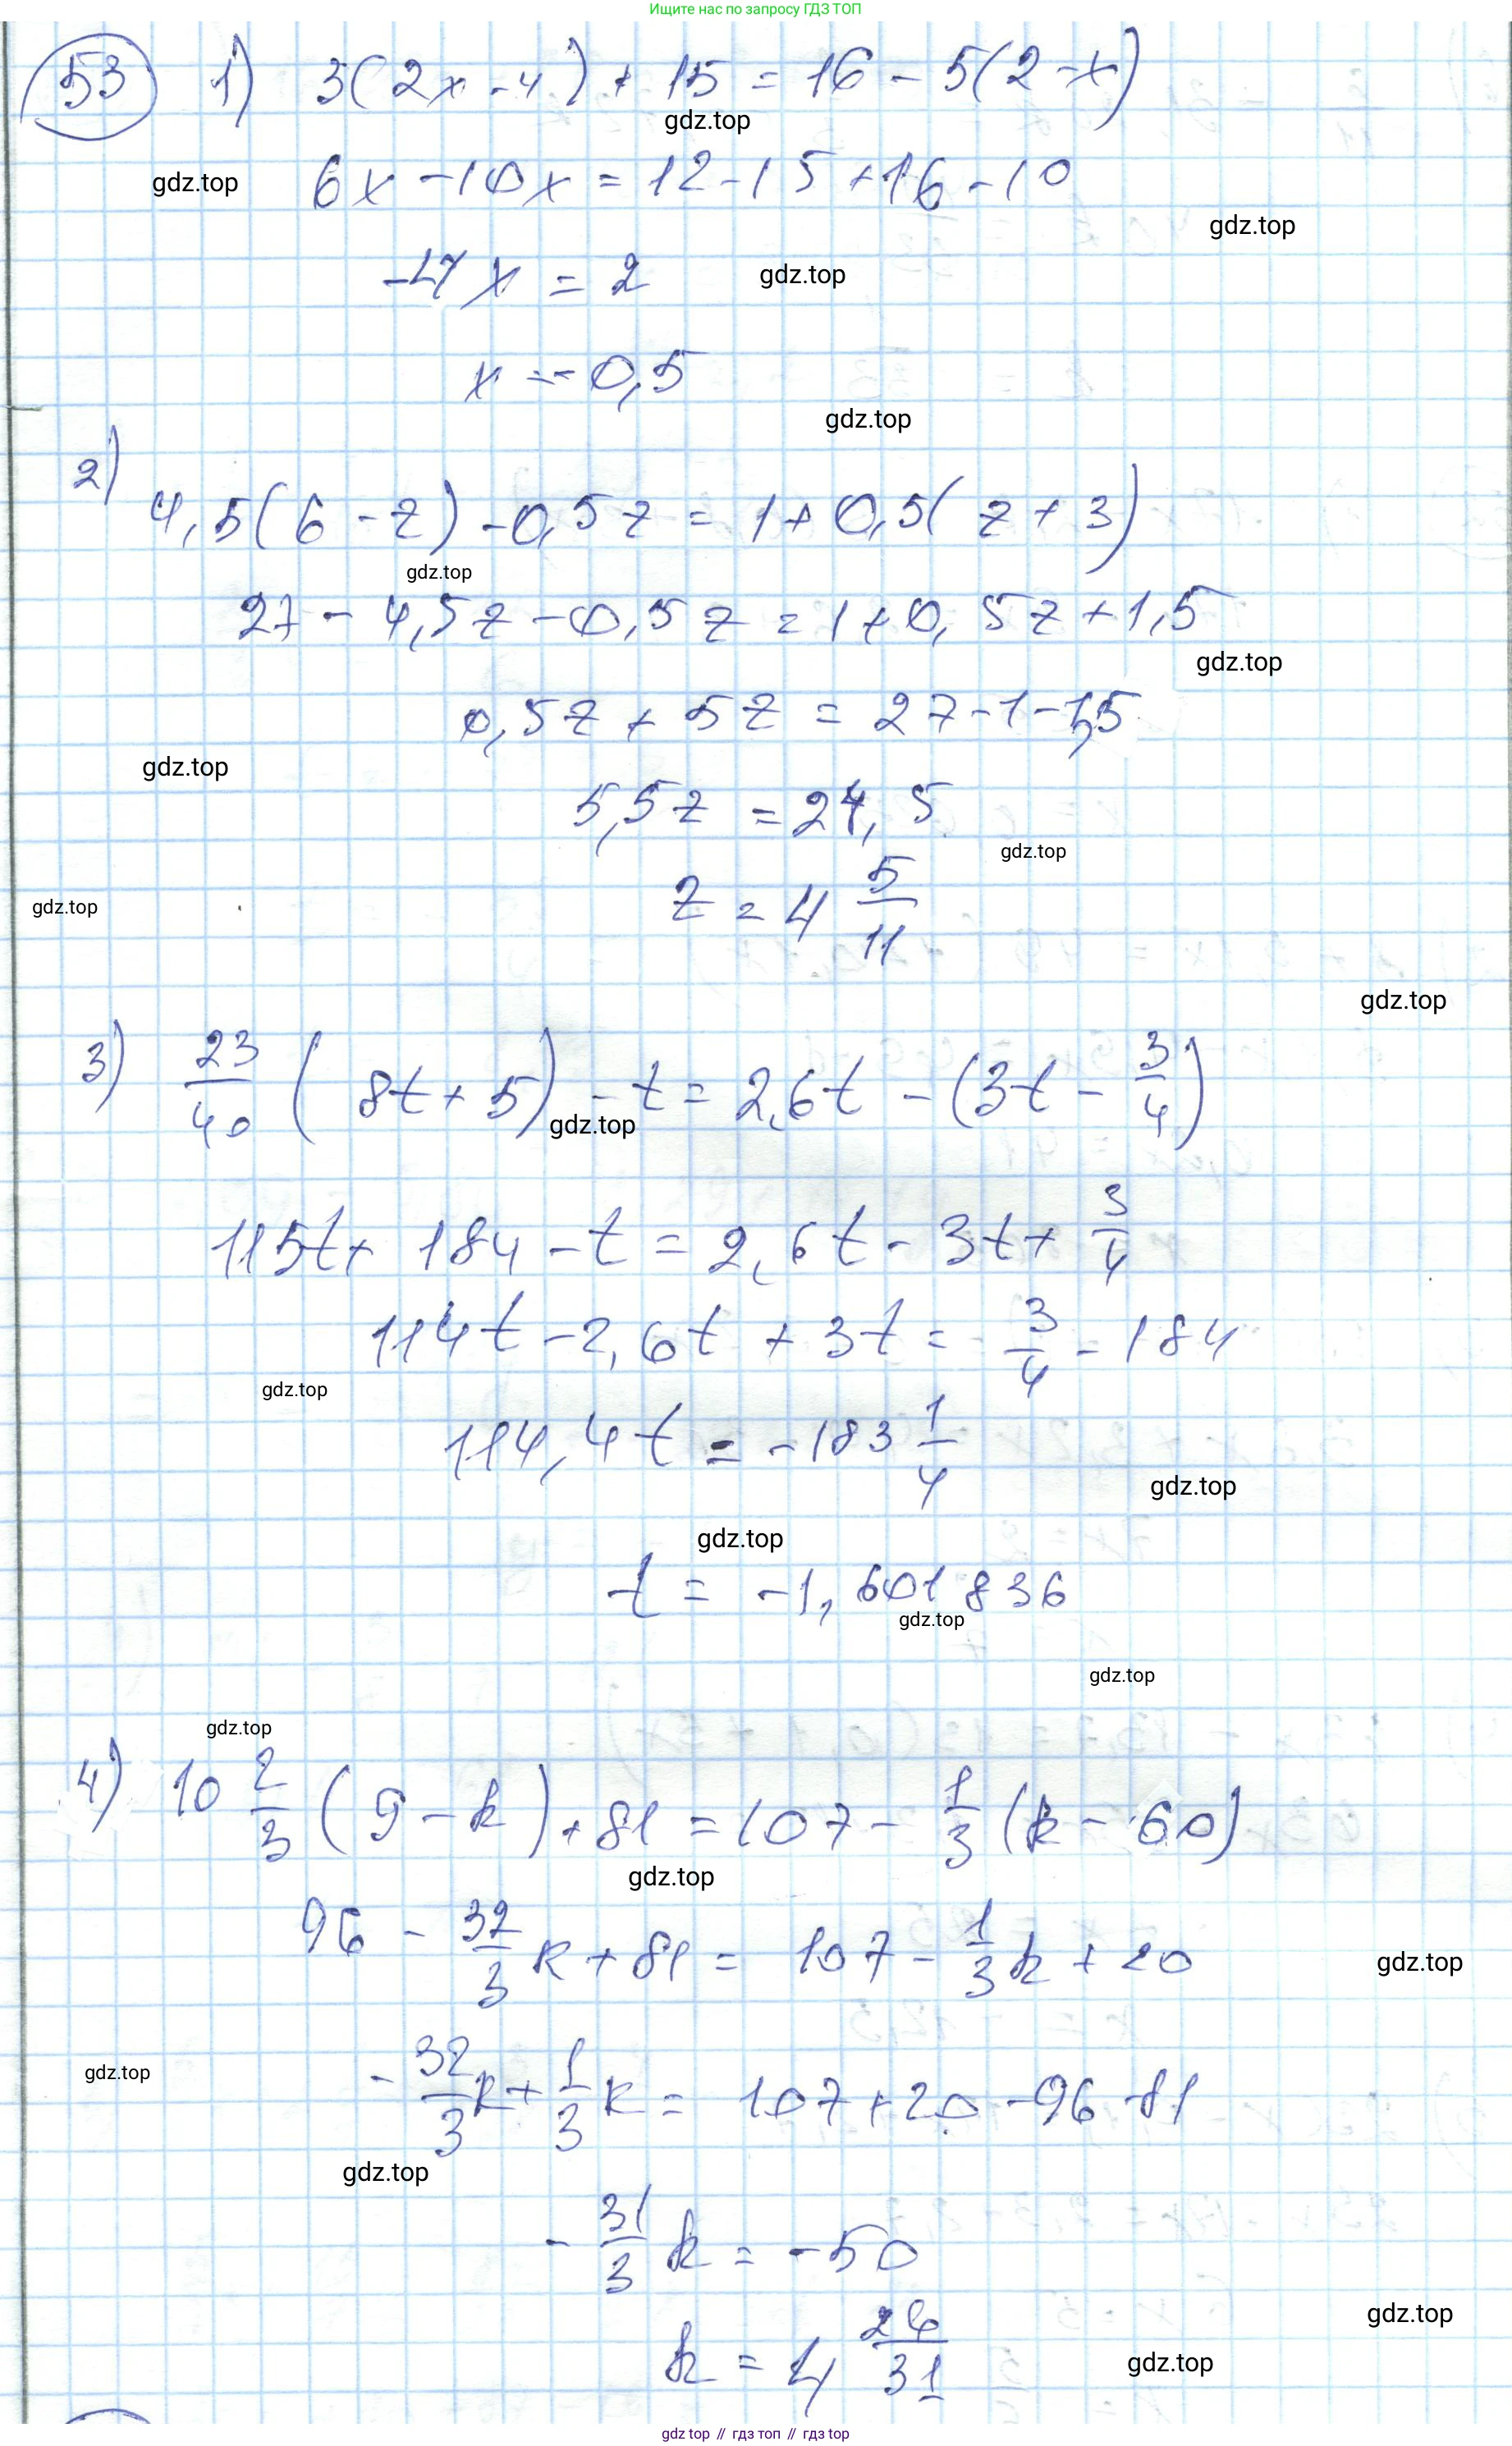 Ищите нас по запросу ГДЗ ТОП
53 1) 3(2x - 4) + 15 = 16 - 5(2 - x)
gdz.top
gdz.top
6x - 10x = 12 - 15 + 16 - 10
gdz.top
-4x = 2
gdz.top
x = -0,5
gdz.top
2)
4,5(6 - z) - 0,5z = 1 + 0,5(z + 3)
gdz.top
27 - 4,5z - 0,5z = 1 + 0,5z + 1,5
gdz.top
0,5z + 5z = 27 - 1 - 1,5
gdz.top
5,5z = 24,5
gdz.top
z = 4 5/11
gdz.top
gdz.top
3) 23/40 (8t + 5) - t = 2,6t - (3t - 3/4)
gdz.top
115t + 184 - t = 2,6t - 3t + 3/4
114t - 2,6t + 3t = 3/4 - 184
gdz.top
114,4t = -183 1/4
gdz.top
gdz.top
t = -1,601836
gdz.top
gdz.top
gdz.top
4) 10 2/3 (9 - k) + 81 = 107 - 1/3 (k - 60)
gdz.top
96 - 32/3 k + 81 = 107 - 1/3 k + 20
gdz.top
- 32/3 k + 1/3 k = 107 + 20 - 96 - 81
gdz.top
gdz.top
- 31/3 k = -50
gdz.top
k = 4 26/31
gdz.top
gdz.top // гдз топ // гдз top